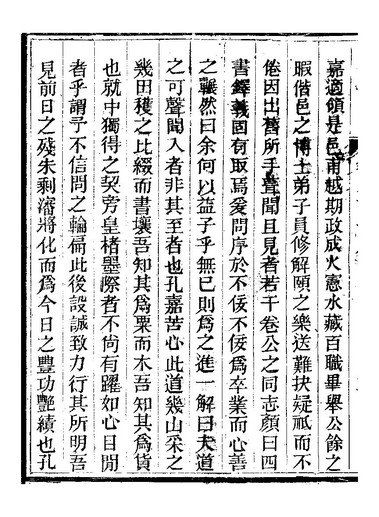 嘉適領是邑甫越期政成火憲水藏百職畢舉公餘之
暇偕邑之博士弟子員修解頤之樂送難抉疑祗而不
倦因出舊所手疏聞且見者若干卷公之同志顏曰四
書鐸義固有取焉爰問序於不佞不佞爲卒業而心善
之囅然曰余何以益子乎無已則爲之進一解曰夫道
之可聲聞入者非其至者也孔嘉苦心此道幾山采之
幾田穫之比綴而書壤吾知其爲粟而木吾知其爲貨
也就中獨得之契旁皇楮墨際者不尚有躍如心目間
者乎謂予不信問之輪扁此後設誠致力行其所明吾
見前日之殘朱剩瀋將化而爲今日之豐功艷績也孔